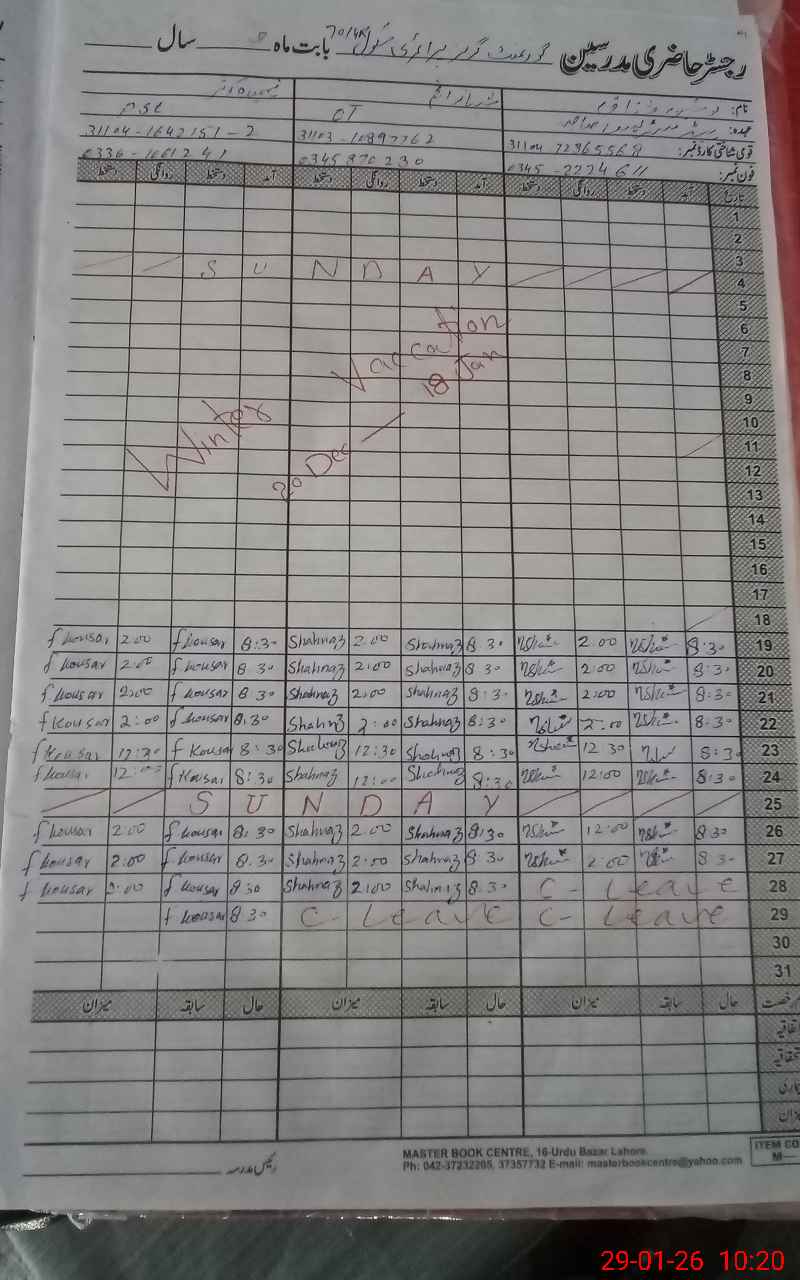 رجسٹر حاضری مدرسین گورنمنٹ گرلز پرائمری سکول 70/4R بابت ماہ سال
نام:
عہدہ: OT PST
قومی شناختی کارڈ نمبر: 31104 72965568 31103-10897762 31104-1642151-2
فون نمبر: 0345-2224611 0345870230 0336-1061241
تاریخ آمد دستخط روانگی دستخط آمد دستخط روانگی دستخط آمد دستخط روانگی دستخط
1
2
3
S U N D A Y 4
5
6
7
8
9
10
11
12
13
14
15
16
17
18
Winter Vaccation
20 Dec — 18 Jan
f kousar 2:00 f kousar 8:30 Shahnaz 2:00 Shahnaz 8:30 2:00 8:30 19
f kousar 2:00 f kousar 8:30 Shahnaz 2:00 Shahnaz 8:30 2:00 8:30 20
f kousar 2:00 f kousar 8:30 Shahnaz 2:00 Shahnaz 8:30 2:00 8:30 21
f Kousar 2:00 f kousar 8:30 Shahnaz 2:00 Shahnaz 8:30 2:00 8:30 22
f Kousar 12:30 f Kousar 8:30 Shahnaz 12:30 Shahnaz 8:30 12:30 8:30 23
f Kousar 12:00 f Kousar 8:30 Shahnaz 12:00 Shahnaz 8:30 12:00 8:30 24
S U N D A Y 25
f kousar 2:00 f kousar 8:30 Shahnaz 2:00 Shahnaz 8:30 12:00 8:30 26
f kousar 2:00 f kousar 8:30 Shahnaz 2:00 Shahnaz 8:30 2:00 8:30 27
f kousar 2:00 f kousar 8:30 Shahnaz 2:00 Shahnaz 8:30 C- Leave 28
f kousar 8:30 C- Leave C- Leave 29
30
31
رخصت حال سابقہ میزان حال سابقہ میزان حال سابقہ میزان
اتفاقیہ
استحقاقیہ
بیماری
میزان
رئیس مدرسہ
MASTER BOOK CENTRE, 16-Urdu Bazar Lahore.
Ph: 042-37232205, 37357732 E-mail: masterbookcentre@yahoo.com
ITEM CO
M—
29-01-26 10:20